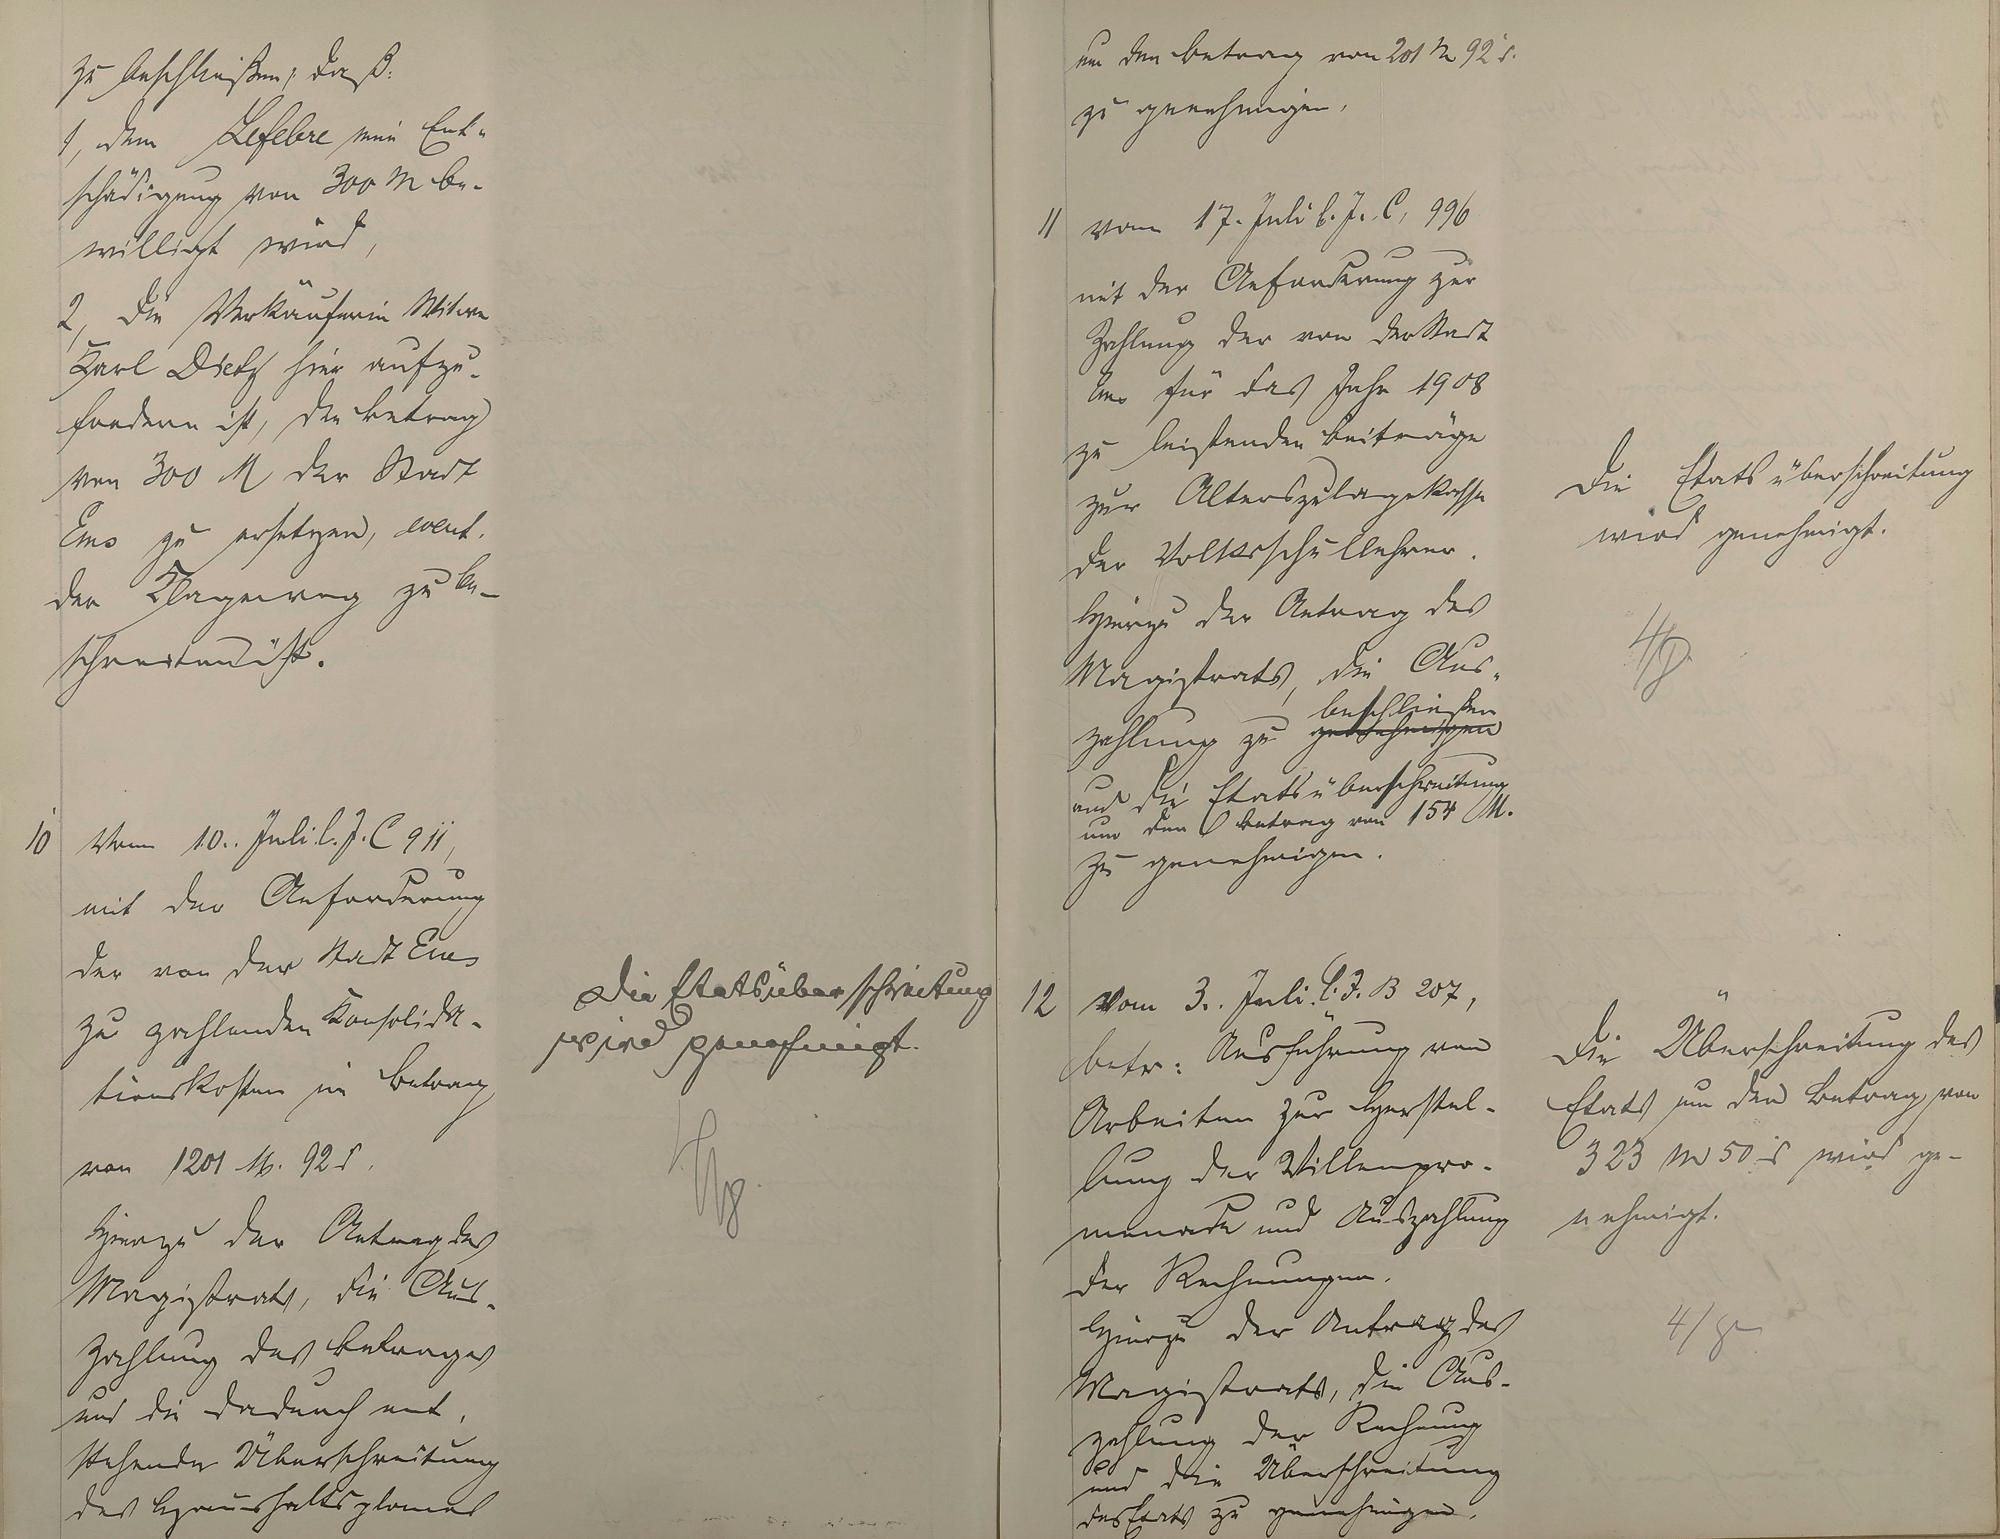 zu beschließen, daß:
1, dem Lefebre eine Ent-
schädigung von 300 M be-
willigt wird,
2, die Verkäuferin Witwe
Karl Dietz hier aufzu-
fordern ist, den Betrag
von 300 M der Stadt
Ems zu ersetzen, event.
der Klageweg zu be-
schreiten ist.
10 Vom 10. Juli l. J. C 911,
mit der Anforderung
der von der Stadt Ems
zu zahlenden Konsolida-
tionskosten im Betrag
von 1201 M. 92 S.
Hierzu der Antrag des
Magistrats, die Aus-
zahlung des Betrages
und die dadurch ent-
stehende Überschreitung
des Haushaltsplanes
Die Etatsüberschreitung
wird genehmigt.
um den Betrag von 201 M 92 S.
zu genehmigen.
11 vom 17. Juli l. J. C, 996
mit der Anforderung zur
Zahlung der von der Stadt
Ems für das Jahr 1908
zu leistenden Beiträge
zur Alterszulagekasse
der Volksschullehrer.
Hierzu der Antrag des
Magistrats, die Aus-
beschließen
zahlung zu genehmigen
und die Etatsüberschreitung
um den Betrag von 154 M.
zu genehmigen.
Die Etatsüberschreitung
wird genehmigt.
12 Vom 3. Juli l. J. B 207,
betr: Ausführung von
Arbeiten zur Herstel-
lung der Villenpro-
menade und Auszahlung
der Rechnungen.
Hierzu der Antrag des
Magistrats, die Aus-
zahlung der Rechnung
und die Überschreitung
des Etats zu genehmigen.
Die Überschreitung des
Etats um den Betrag von
323 M 50 S wird ge-
nehmigt.